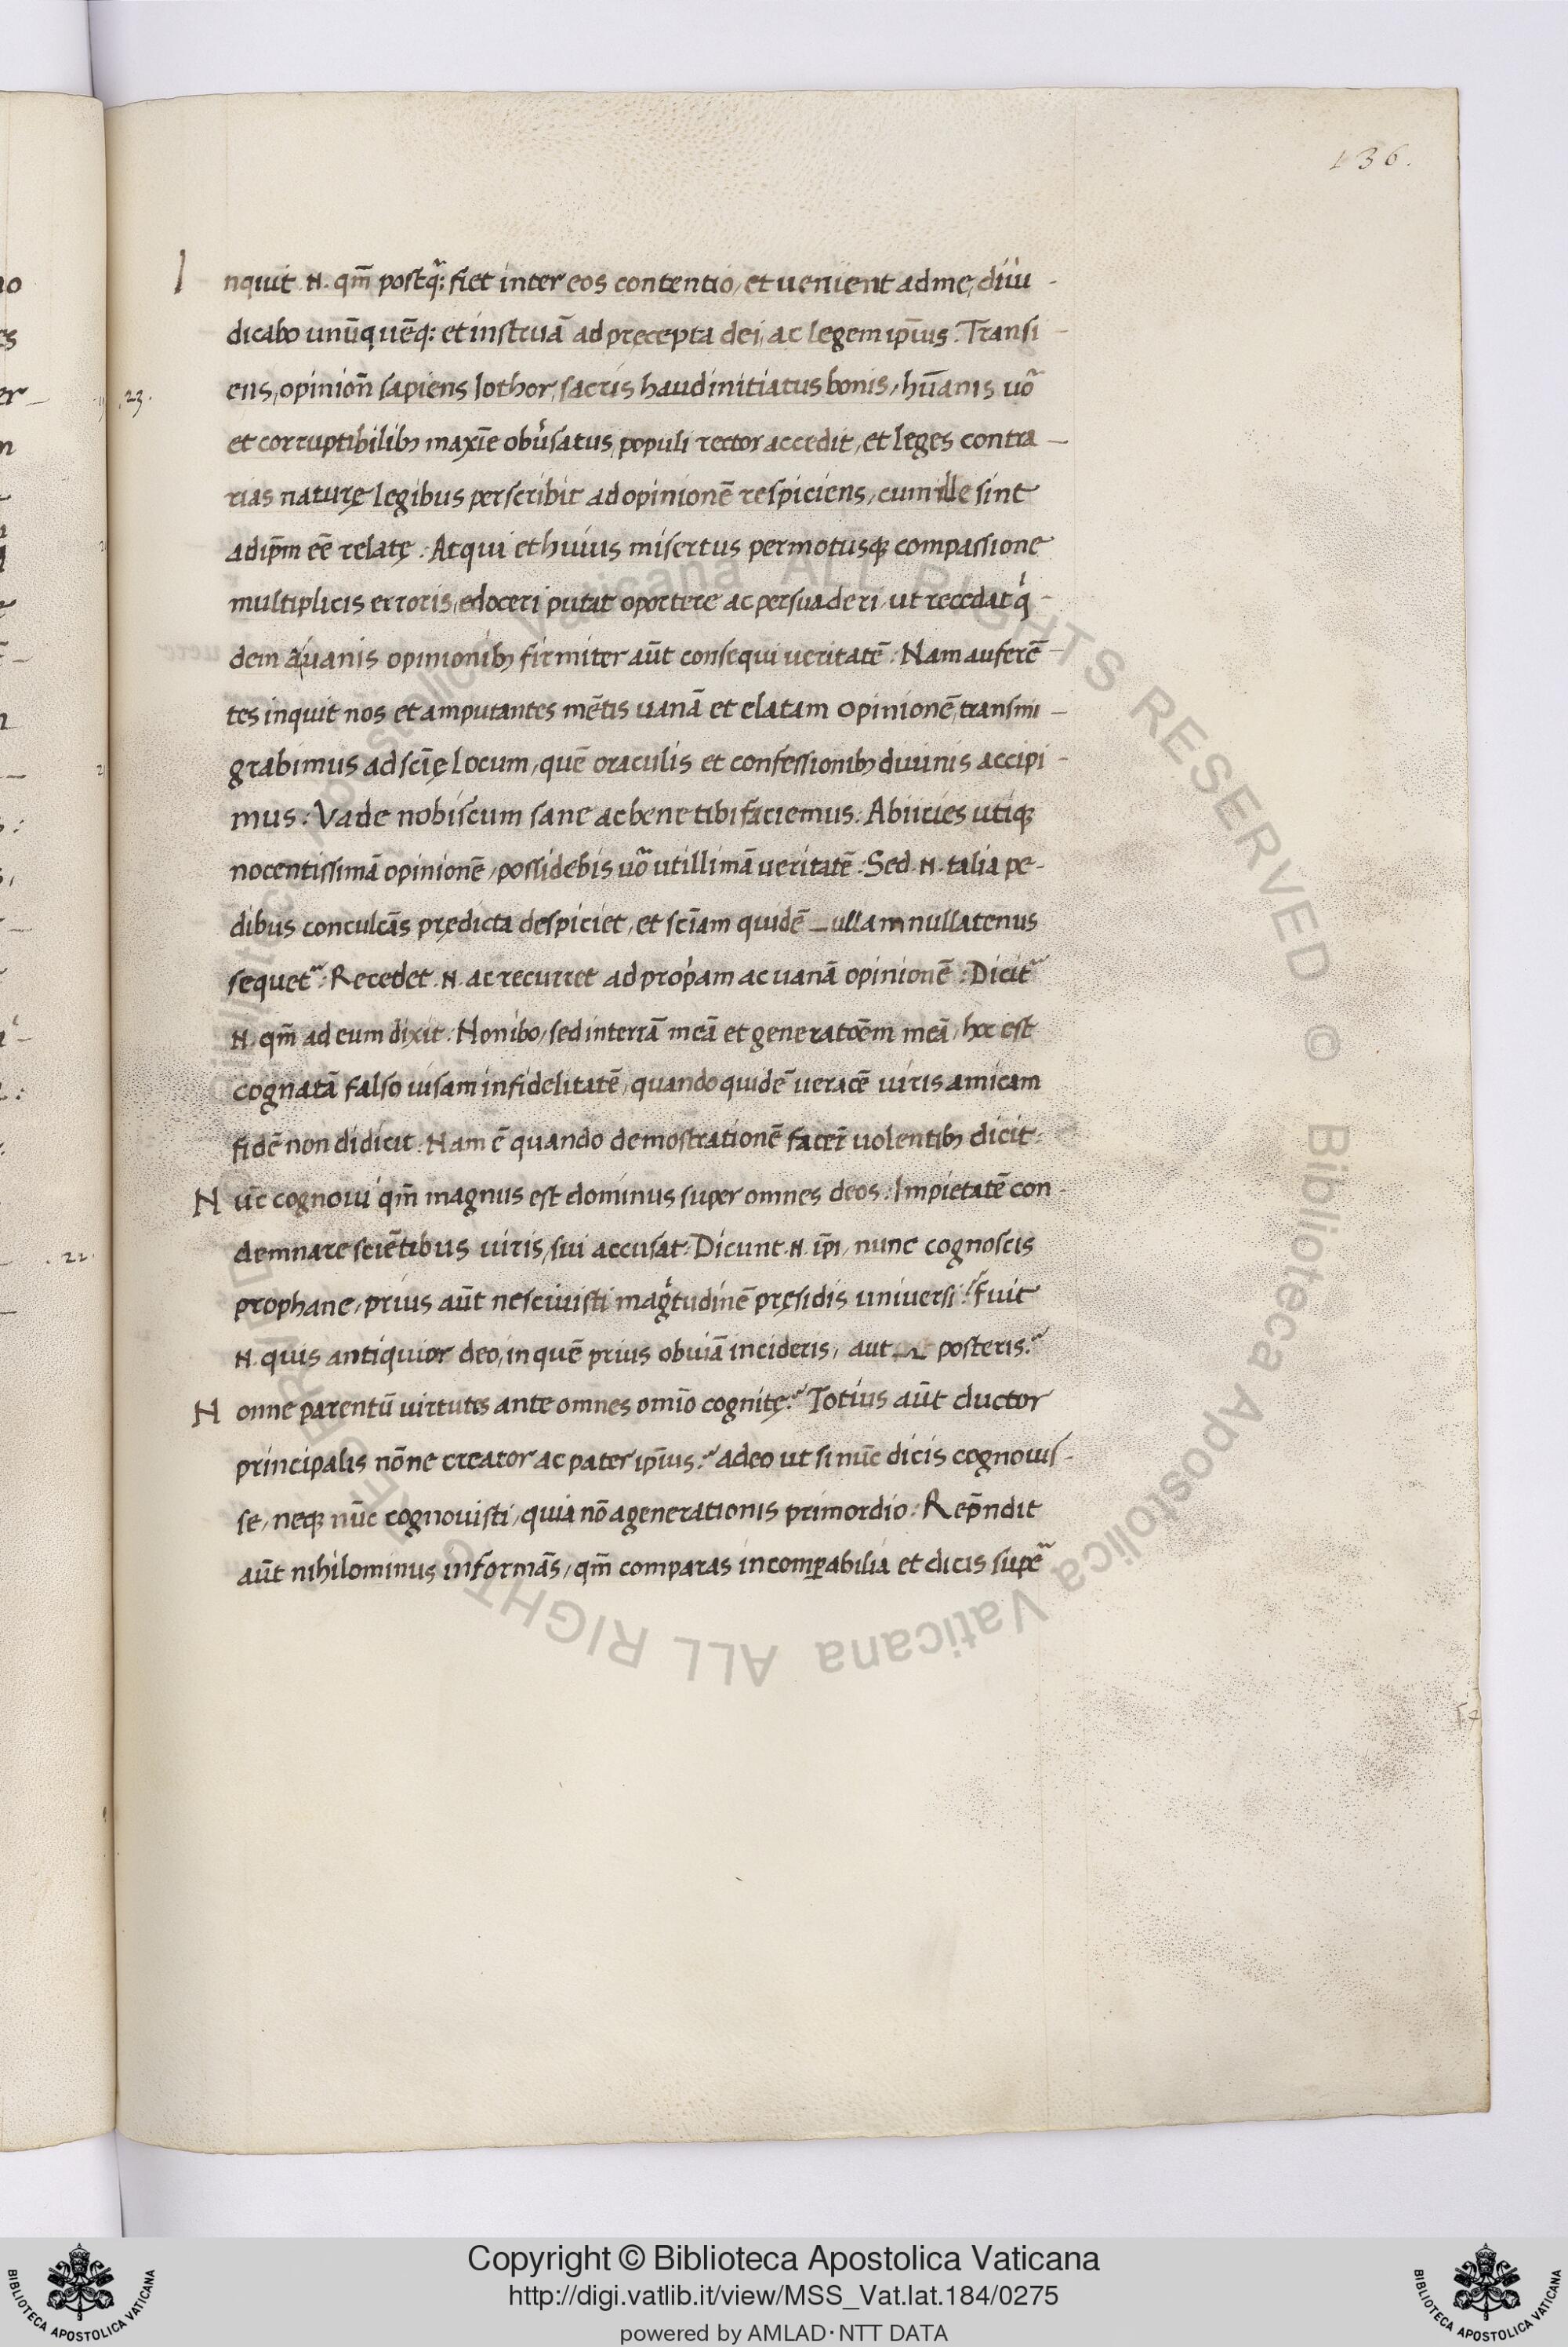 136.
Inquit .N. qm̄ postq̃: fiet inter eos contentio, et uenient ad me, diiu-
dicabo unūquēq: et instruā ad pręcepta dei, ac legem ip̄ius. Transi-
23.
ens, opinion̄ sapiens Iothor, sacris haud initiatus bonis, hūanis uõ
et corruptibilib; maxīe obu̓satus, populi rector accedit, et leges contra-
rias naturę legibus perscribit ad opinionē respiciens, cum ille sint
ad ip̄m eē relatę: Atqui et huius misertus permotusq; compassione
multiplicis erroris, edoceri putat oportere ac persuaderi, ut recedat q̓-
dem a uanis opinionib; firmiter aūt consequi ueritatē: Nam auferē-
tes inquit nos et amputantes mētis uanā et elatam opinionē, transmi-
grabimus ad scīę locum, quē oraculis et confessionib; diuinis accipi-
mus: Vade nobiscum sane ac bene tibi faciemus: Abiicies utiq;
nocentissimā opinionē, possidebis uõ utillimā ueritatē: Sed .N. talia pe-
dibus conculcās prędicta despiciet, et scīam quidē _ullam nullatenus
sequet᷑: Recedet .N. ac recurret ad prop̓am ac uanā opinionē: Dicit᷑
.N. qm̄ ad eum dixit: Non ibo, sed in terrā meā et generatōem meā, hoc est
cognatā falso uisam infidelitatē, quando quidē ueracē uiris amicam
fidē non didicit: Nam ē quando demostrationē facer̄ uolentib; dicit:
Nūc cognoui qm̄ magnus est dominus super omnes deos: Impietatē con-
demnare sciētibus uiris, sui accusat: Dicunt .N. ip̄i, nunc cognoscis
22.
prophane, prius aūt nesciuisti mag̓tudinē pręsidis uniuersi? Fuit
.N. quis antiquior deo, in quē prius obuiā incideris, aut posteris?
Nonne parentū uirtutes ante omnes omīo cognitę? Totius aūt ductor
principalis nōne creator ac pater ip̄ius? adeo ut si nūc dicis cognouis-
se, neq; nūc cognouisti, quia nō a generationis primordio: Rep̄ndit
aūt nihilominus informās, qm̄ comparas incomꝑabilia et dicis supē
Copyright © Biblioteca Apostolica Vaticana
http://digi.vatlib.it/view/MSS_Vat.lat.184/0275
powered by AMLAD·NTT DATA